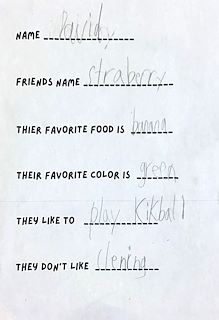 NAME
FRIENDS NAME straberry
THIER FAVORITE FOOD IS banana
THEIR FAVORITE COLOR IS green
THEY LIKE TO play Kikball
THEY DON'T LIKE slening